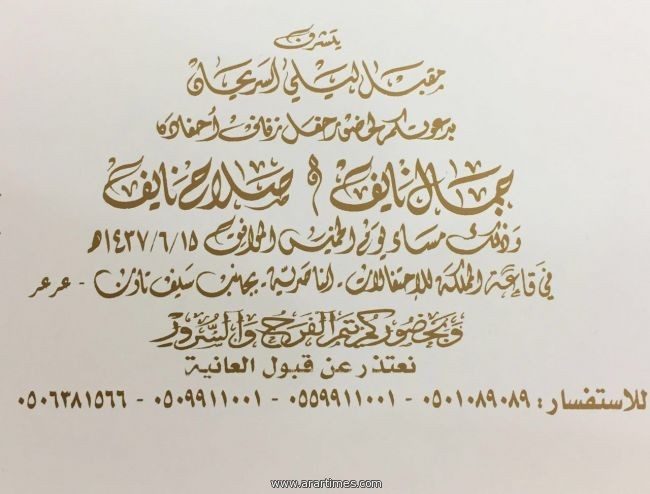 يتشرف
مقبل ليلي السريحان
بدعوتكم لحضور حفل زفاف أحفاده
جمال نايف و صلاح نايف
وذلك مساء يوم الخميس الموافق ١٤٣٧/٦/١٥هـ
في قاعة المملكة للإحتفالات - الناصرية - بجانب سيف تاون - عرعر
وبحضوركم يتم الفرح والسرور
نعتذر عن قبول العانية
للاستفسار : ٠٥٠١٠٨٩٠٨٩ - ٠٥٥٩٩١١٠٠١ - ٠٥٠٩٩١١٠٠١ - ٠٥٠٦٣٨١٥٦٦
www.arartimes.com